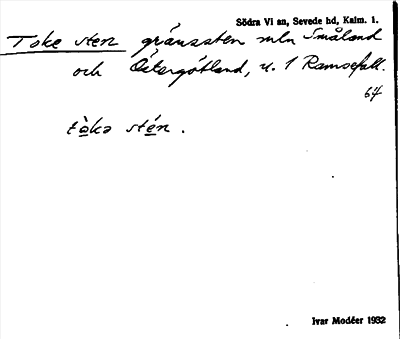 Södra Vi sn, Sevede hd, Kalm. l.
Toke sten gränssten mln Småland
och Östergötland, u. 1 Ramsefall.
64
tòkə stén .
Ivar Modéer 1932